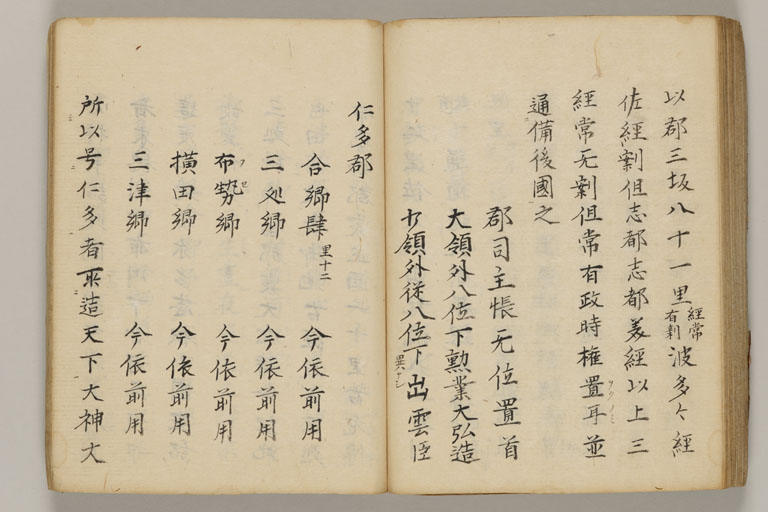 以郡三坂八十一里経常有剗波多々經
佐經剗但志都志都美經以上三
經常无剗但常有政時權置耳並
通備後國之
郡司主帳无位置首
大領外八位下勲業大弘造
少領外従八位下出雲臣
仁多郡
合郷肆里十二 今依前用
三処郷 今依前用
布勢郷 今依前用
横田郷 今依前用
三津郷 今依前用
所以号仁多者所造天下大神大